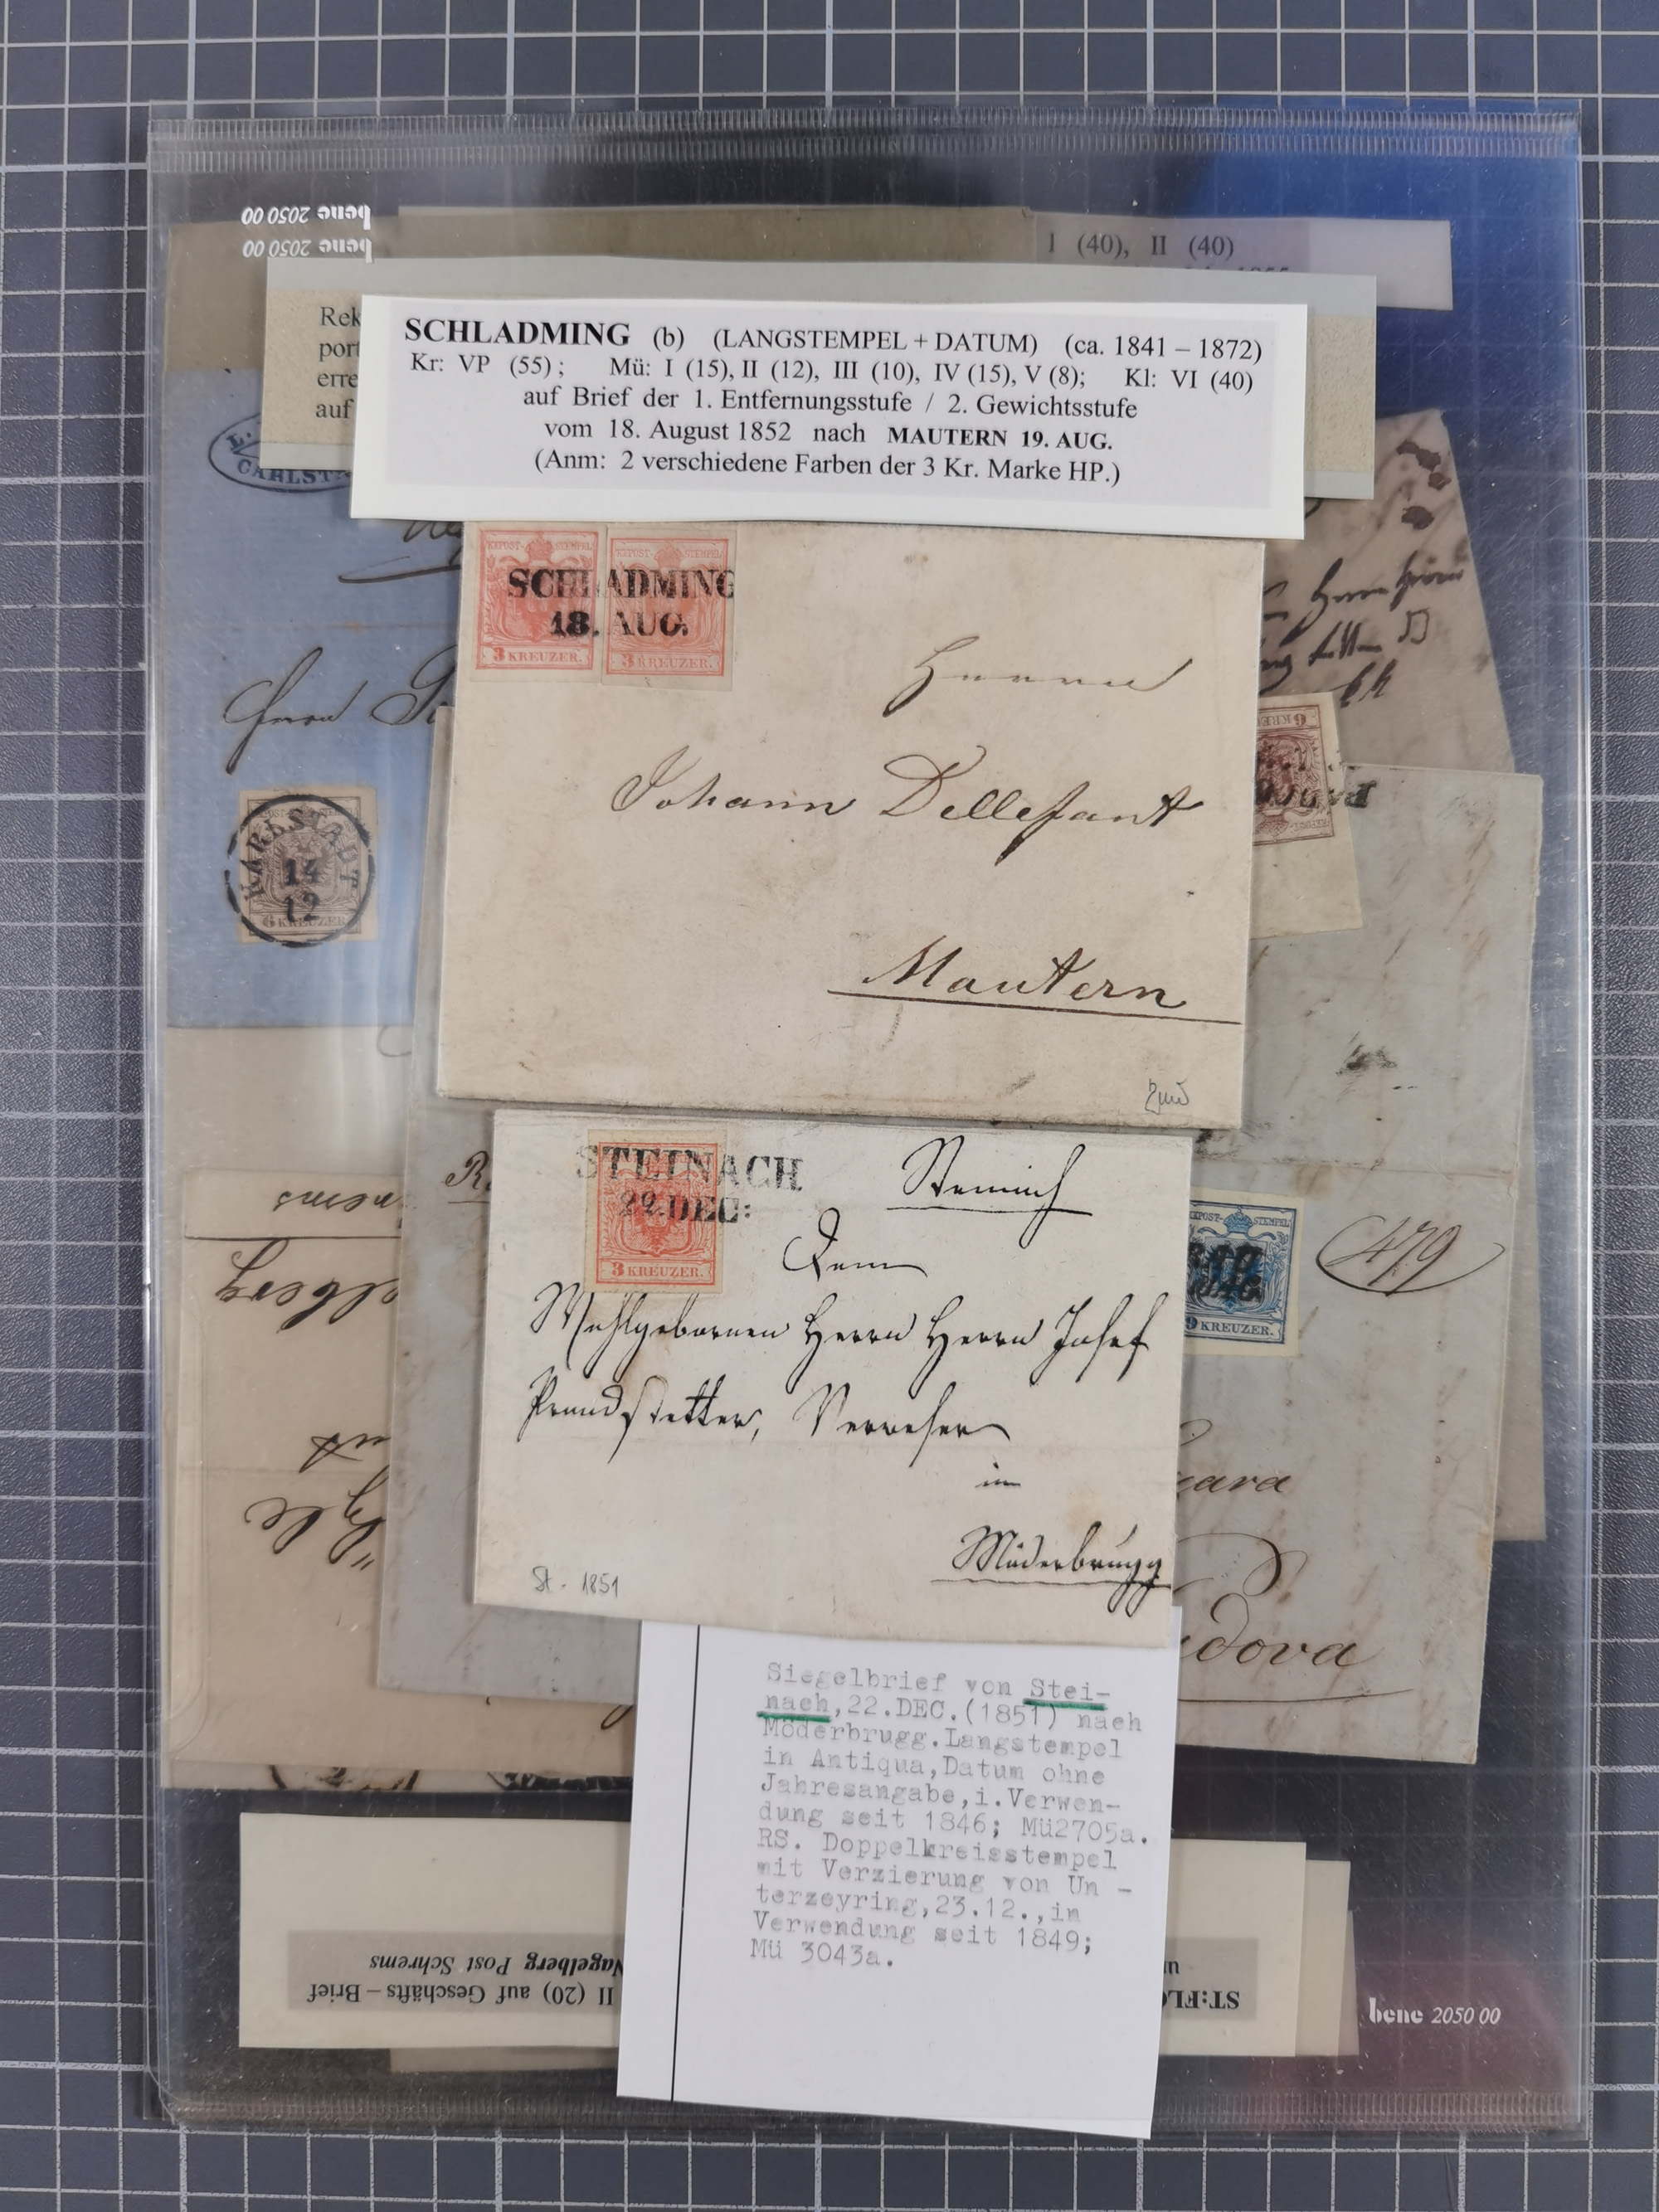 bene 2050 00
bene 2050 00
I (40), II (40)
Rek
port
erre
auf
SCHLADMING (b) (LANGSTEMPEL + DATUM) (ca. 1841 – 1872)
Kr: VP (55) ; Mü: I (15), II (12), III (10), IV (15), V (8); Kl: VI (40)
auf Brief der 1. Entfernungsstufe / 2. Gewichtsstufe
vom 18. August 1852 nach MAUTERN 19. AUG.
(Anm: 2 verschiedene Farben der 3 Kr. Marke HP.)
CARLST
KKPOST-STEMPEL
KKPOST-STEMPEL
SCHLADMING
18. AUG:
3 KREUZER.
3 KREUZER.
Herrn
Johann Dellefant
Mautern
Herrn
KARLSTADT
14
12
6 KREUZER
6 KREU
STEINACH
22. DEC:
3 KREUZER.
Steinach
Dem
Wohlgebornen Herrn Herrn Josef
Prandstetter, Verweser
in
Möderbrugg
St. 1851
KKPOST-STEMPEL
9 KREUZER.
479
dova
Siegelbrief von Stei-
nach,22.DEC.(1851) nach
Möderbrugg.Langstempel
in Antiqua,Datum ohne
Jahresangabe,i.Verwen-
dung seit 1846; Mü2705a.
RS. Doppelkreisstempel
mit Verzierung von Un -
terzeyring,23.12.,in
Verwendung seit 1849;
Mü 3043a.
II (20) auf Geschäfts – Brief
Nagelberg Post Schrems
ST:FLO
u
bene 2050 00